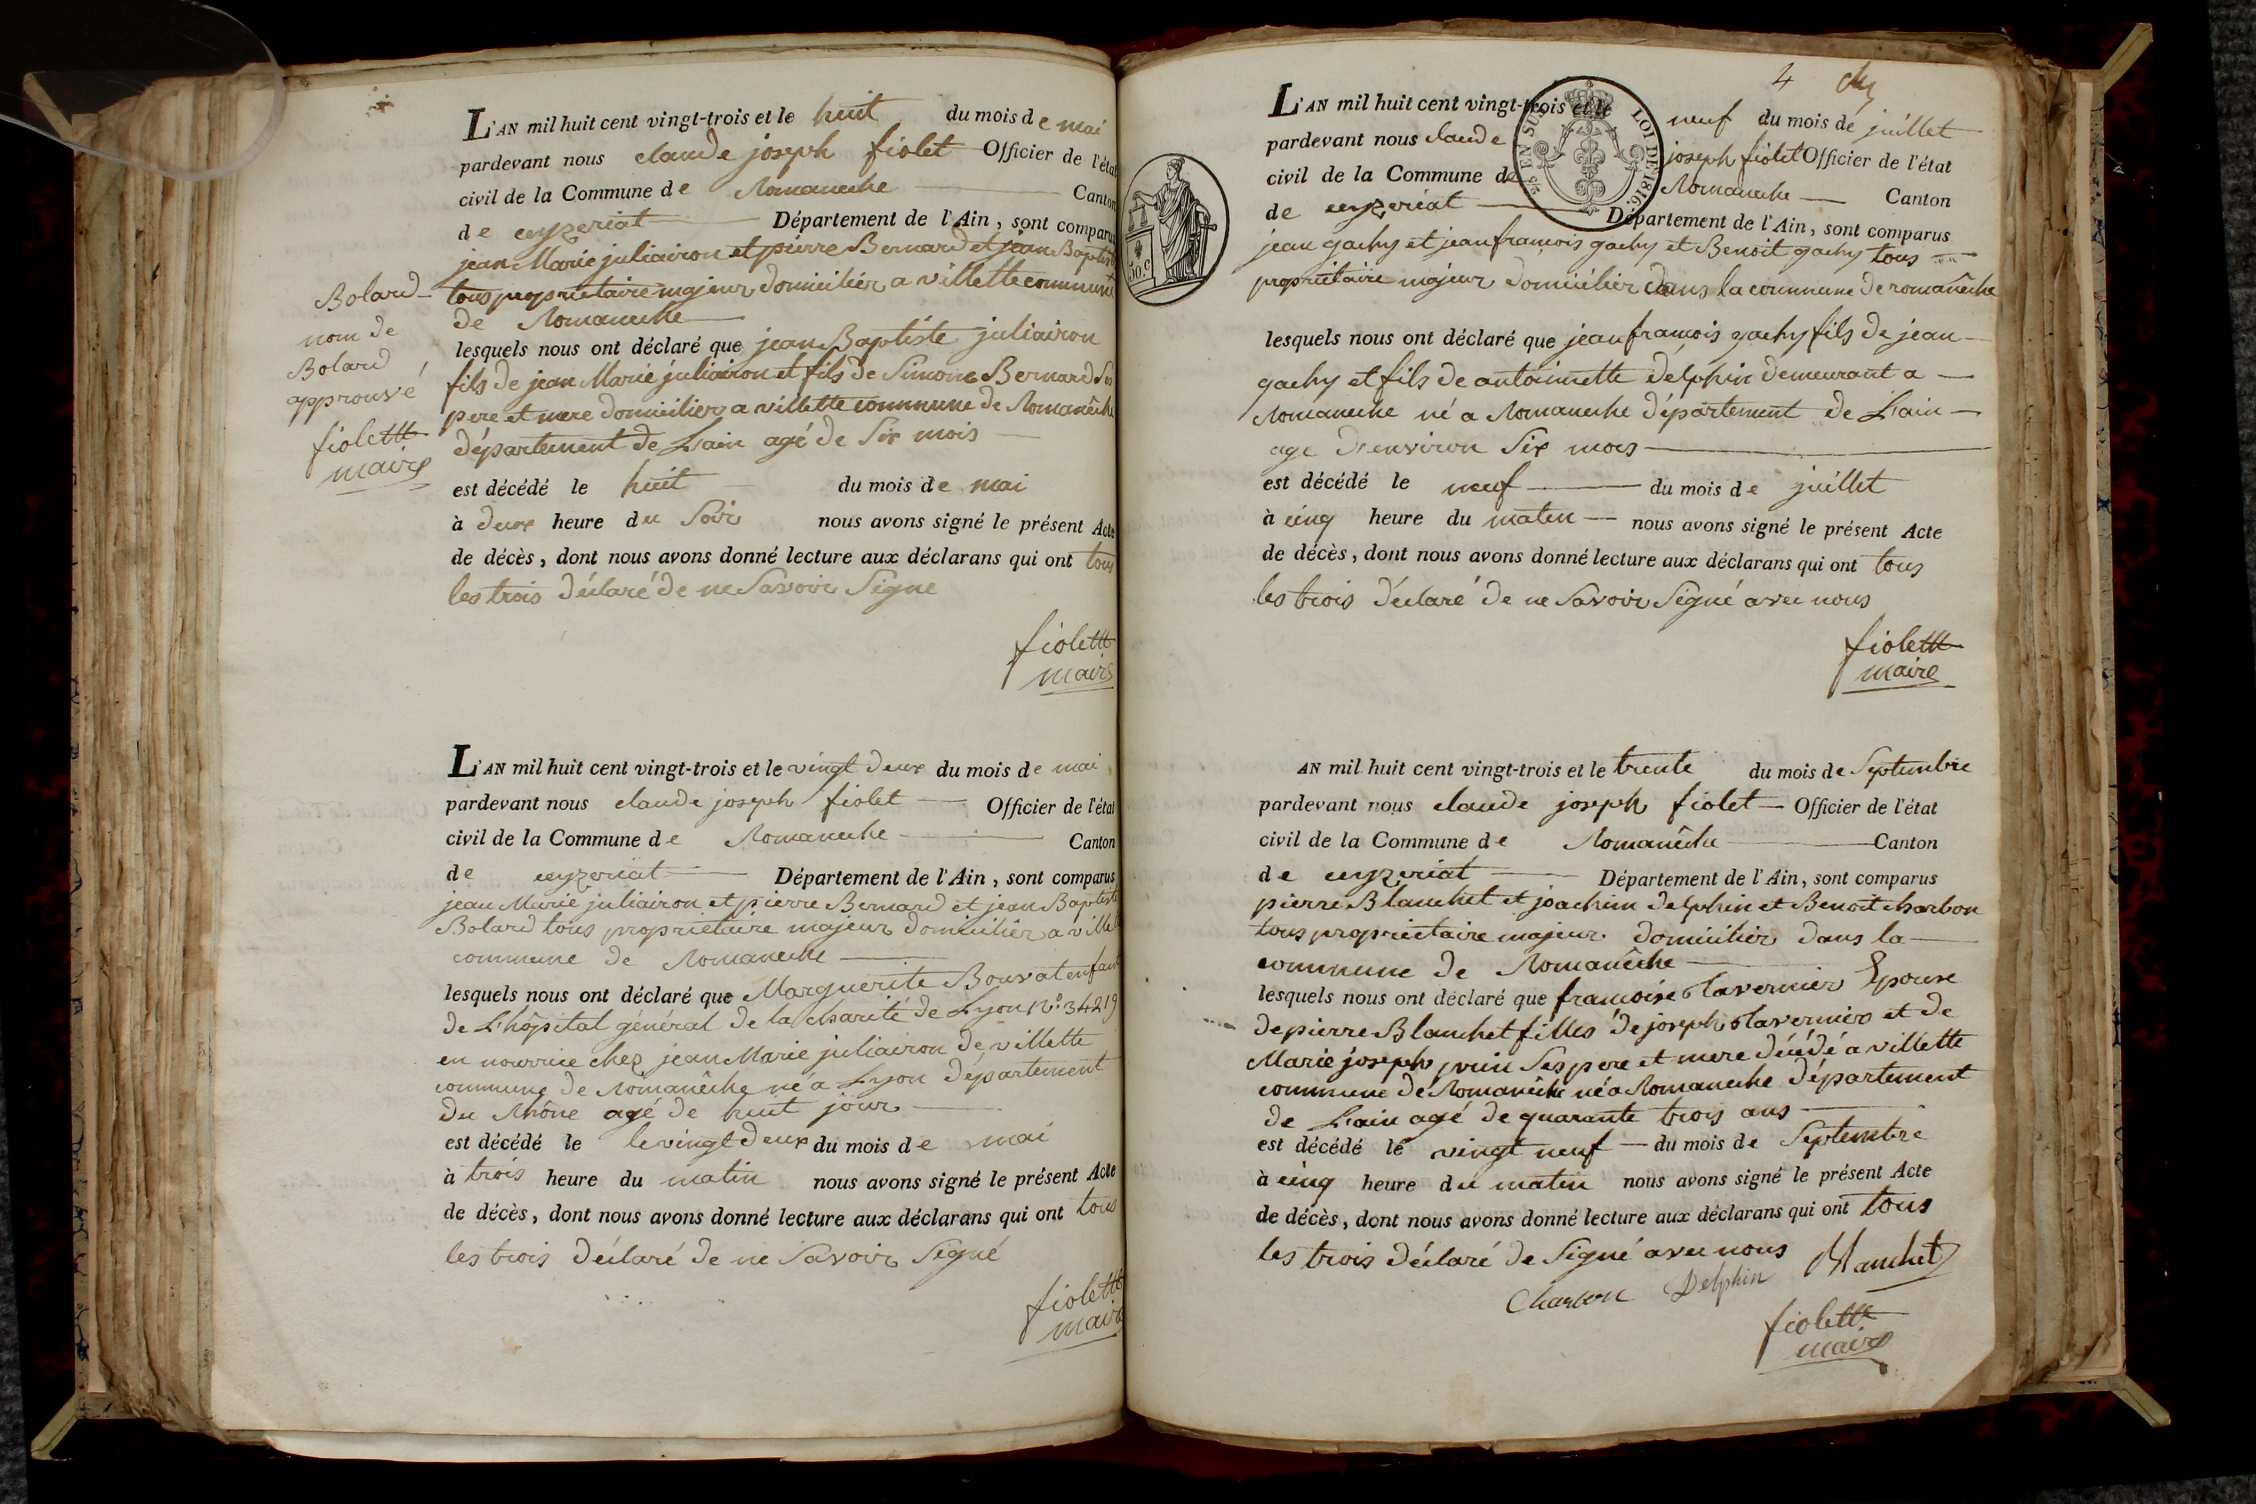 L'AN mil huit cent vingt-trois et le huit du mois de mai
pardevant nous claude joseph fiolet Officier de l'état
civil de la Commune de Romaneche Canton
de ceyzeriat Département de l'Ain, sont comparus
jean Marie juliairon et pierre Bernard et jean Baptiste
tous proprietaire majeur domicilier a villette commune
de Romaneche
lesquels nous ont déclaré que jean Baptiste juliairon
fils de jean Marie juliairon et fils de Simone Bernard Ses
pere et mere domicilier a villette commune de Romanêche
département de L'ain agé de Six mois
est décédé le huit du mois de mai
à deux heure du Soir nous avons signé le présent Acte
de décès, dont nous avons donné lecture aux déclarans qui ont tous
les trois déclaré de ne Savoir Signe
fiolett
maire
Bolard
nom de
Bolard
approuvé
fiolett
maire
L'AN mil huit cent vingt-trois et le vingt deux du mois de mai
pardevant nous claude joseph fiolet Officier de l'état
civil de la Commune de Romaneche Canton
de ceyzeriat Département de l'Ain, sont comparus
jean Marie juliairon et pierre Bernard et jean Baptiste
Bolard tous proprietaire majeur domicilier a villette
commune de Romaneche
lesquels nous ont déclaré que Marguerite Bouvat enfant
de L'hôpital général de la charité de Lyon N° 34219
en nourrice chez jean Marie juliairon de villette
commune de Romanêche né a Lyon département
du Rhône agé de huit jour
est décédé le le vingt deux du mois de mai
à trois heure du matin nous avons signé le présent Acte
de décès, dont nous avons donné lecture aux déclarans qui ont tous
les trois déclaré de ne Savoir Signé
fiolett
maire
4
LOI DE 1816.
EN SUS
50.c
L'AN mil huit cent vingt-trois et le neuf du mois de juillet
pardevant nous claude joseph fiolet Officier de l'état
civil de la Commune de Romaneche Canton
de ceyzeriat Département de l'Ain, sont comparus
jean gachy et jean francois gachy et Benoit gachy tous
proprietaire majeur domicilier dans la commune de romanêche
lesquels nous ont déclaré que jean francois gachy fils de jean
gachy et fils de antoinette delphin demeurant a
Romaneche né a Romaneche département de L'ain
age d'environ Six mois
est décédé le neuf du mois de juillet
à cinq heure du matin nous avons signé le présent Acte
de décès, dont nous avons donné lecture aux déclarans qui ont tous
les trois déclaré de ne Savoir Signé avec nous
fiolett
maire
AN mil huit cent vingt-trois et le trente du mois de Septembre
pardevant nous claude joseph fiolet Officier de l'état
civil de la Commune de Romanêche Canton
de ceyzeriat Département de l'Ain, sont comparus
pierre Blanchet et joachim delphin et Benoit charbon
tous proprietaire majeur domicilier dans la
commune de Romanêche
lesquels nous ont déclaré que francoise tavernier Epouse
de pierre Blanchet filles de joseph tavernier et de
Marie joseph Ses pere et mere décédé a villette
commune de Romanêche né a Romaneche département
de L'ain agé de quarante trois ans
est décédé le vingt neuf du mois de Septembre
à cinq heure du matin nous avons signé le présent Acte
de décès, dont nous avons donné lecture aux déclarans qui ont tous
les trois déclaré de Signé avec nous Blanchet
Charbon Delphin
fiolett
maire